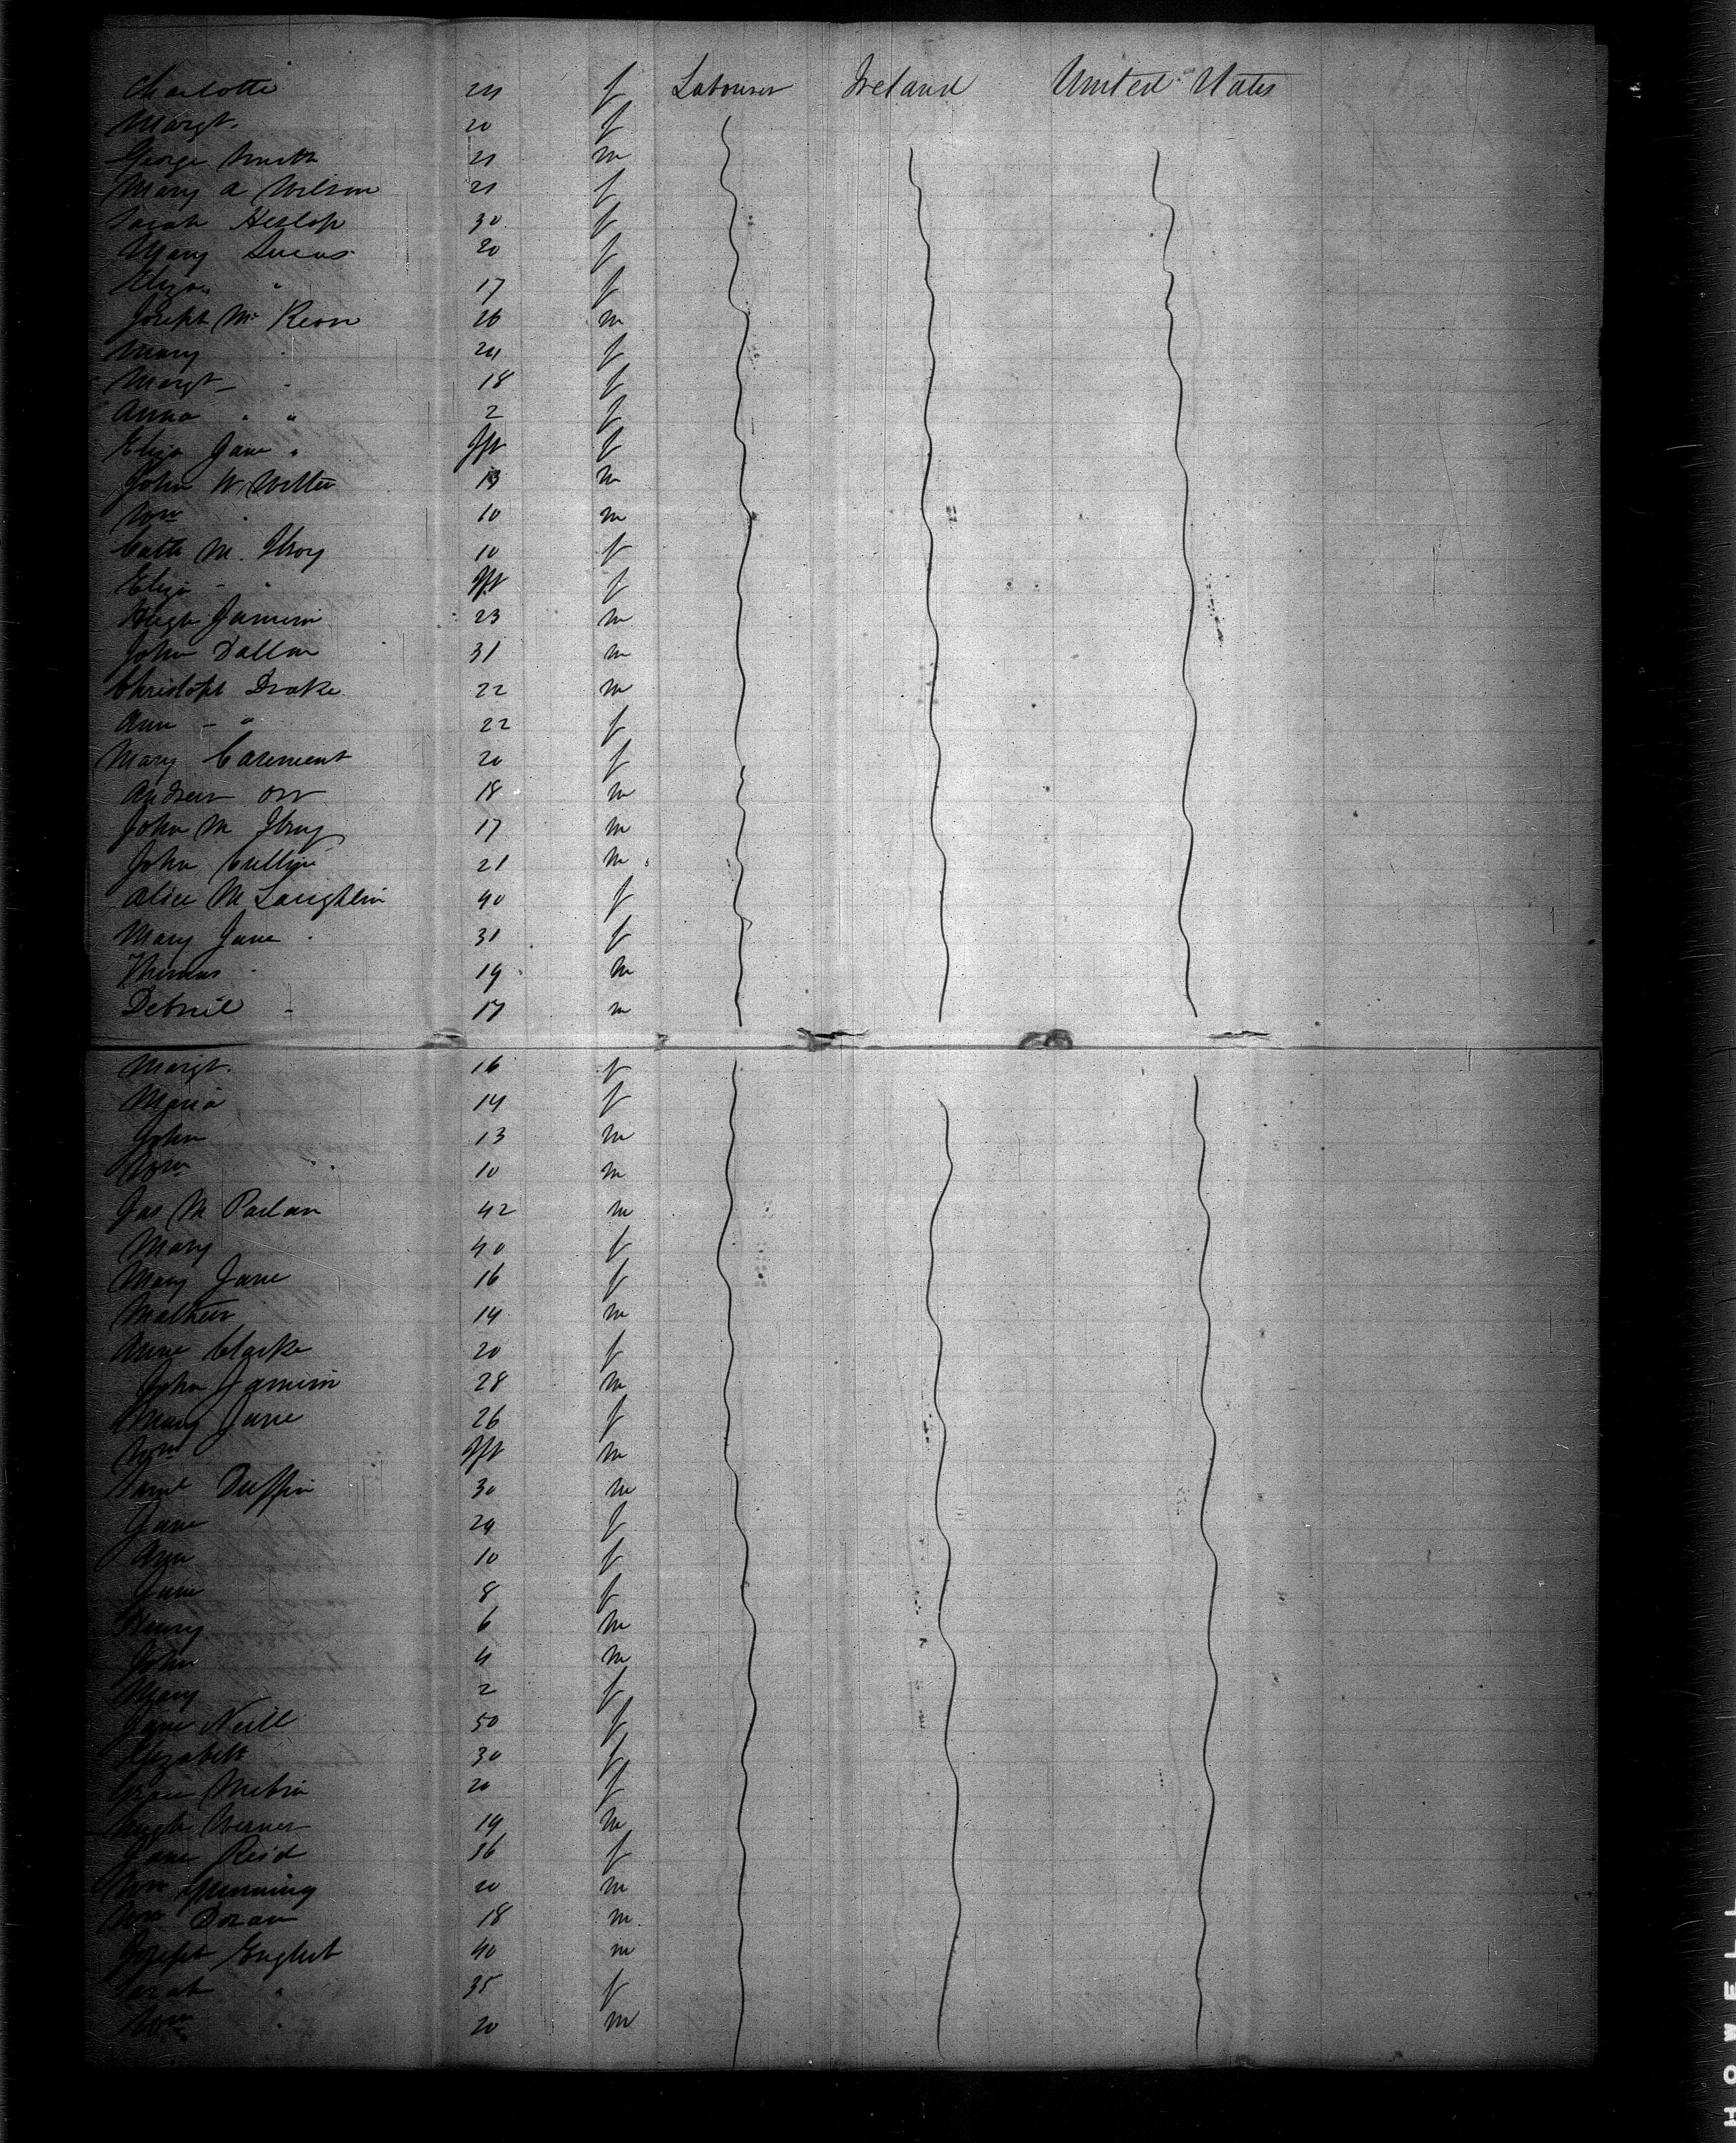 Charlotte 24 f Labourer Ireland United States
Margt. 20 f
George Smith 21 m
Mary A Wilson 21 f
Sarah Heslop 30 f
Mary Lucas 20 f
Eliza " 17 f
Joseph Mc Keon 26 m
Mary " 24 f
Margt " 18 f
Anna " " 2 f
Eliza Jane " Jft f
John W. 13 m
Wm 10 m
Cath M. Ilroy 10 f
Eliza - " Jft f
Hugh Jamison 23 m
John 31 m
Christoph Drake 22 m
Ann - " 22 f
Mary Casement 20 f
Andrew Orr 18 m
John M 17 m
John 21 m
Alice M Laughlin 40 f
Mary Jane " 31 f
Thomas " 19 m
17 m
Margt. 16 f
Maria 14 f
John 13 m
Wm 10 m
Jas M Parlan 42 m
Mary 40 f
Mary Jane 16 f
Mathew 14 m
Anne Clarke 20 f
John Jamison 28 m
Mary Jane 26 f
Wm Jft m
Saml Duffin 30 m
Jane 29 f
Ann 10 f
Jane 8 f
Henry 6 m
John 4 m
Mary 2 f
Jane Neill 50 f
Elizabeth 30 f
Grace 20 f
Hugh Werner 19 m
Jane Reid 36 f
Wm 20 m
Wm Doran 18 m.
Joseph English 40 m
Sarah " 35 f
Wm " 20 m
HOWELL